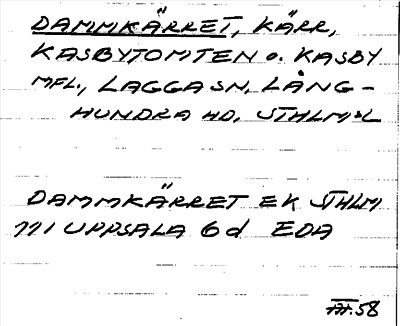 DAMMKÄRRET, KÄRR,
KASBYTOMTEN o. KASBY
MFL., LAGGA SN, LÅNG-
HUNDRA HD, STHLMSL
DAMMKÄRRET EK STHLM
111 UPPSALA 6d EDA
58